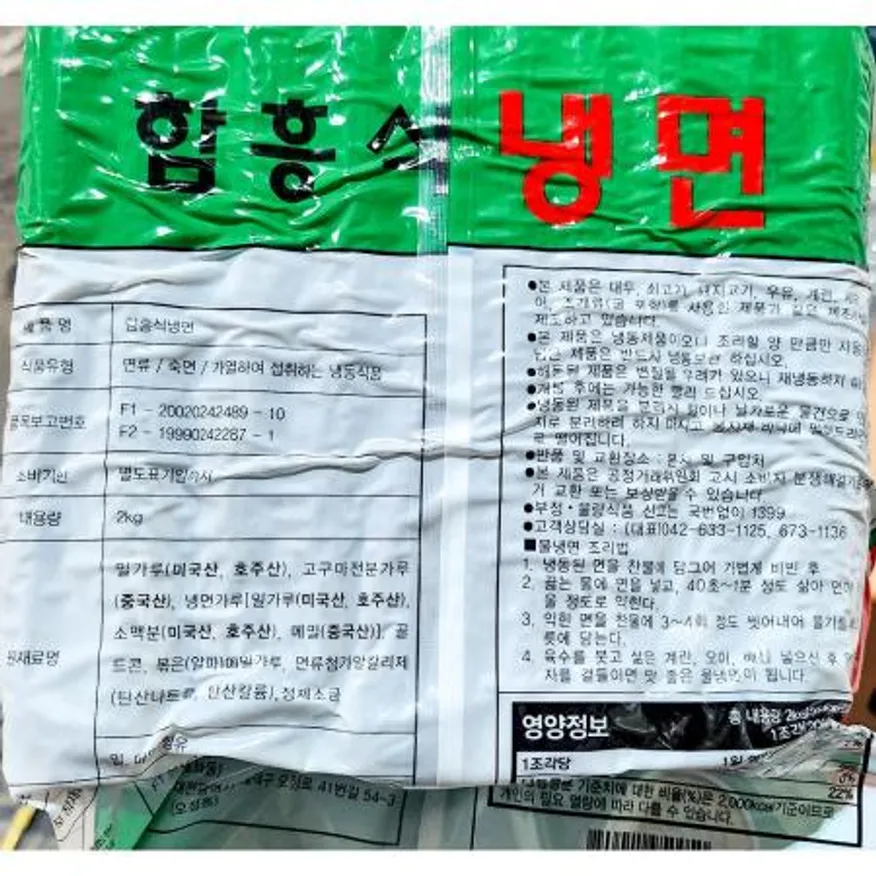 함흥식 냉면
제품명 함흥식냉면
식품유형 면류 / 숙면 / 가열하여 섭취하는 냉동식품
품목보고번호 F1 - 20020242489 - 10
F2 - 19990242287 - 1
소비기한 별도표기일까지
내용량 2kg
원재료명
밀가루(미국산, 호주산), 고구마전분가루
(중국산), 냉면가루[밀가루(미국산, 호주산),
소맥분(미국산, 호주산), 메밀(중국산)], 골
드콘, 볶은(알파)메밀가루, 면류첨가알칼리제
(탄산나트륨, 탄산칼륨), 정제소금
밀, 함유
41번길 54-3
(오정동)
●본 제품은 대두, 쇠고기, 돼지고기, 우유, 계란,
조개류(굴 포함)를 사용한 제품과 같은
제조하고 있습니다.
●본 제품은 냉동제품이오니 조리할 양 만큼만
남은 제품은 반드시 냉동보관 하십시오.
●해동된 제품은 변질될 우려가 있으니 재냉동하지
●개봉 후에는 가능한 빨리 드십시오.
●냉동된 제품을 분리시 칼이나 날카로운 물건으로
지로 분리하려 하지 마시고 봉지째 바닥에
로 떨어집니다.
●반품 및 교환장소 : 본사 및 구입처
●본 제품은 공정거래위원회 고시 소비자 분쟁해결기준에
거 교환 또는 보상받을 수 있습니다.
●부정·불량식품 신고는 국번없이 1399
●고객상담실 : (대표)042-633-1125, 673-1136
■물냉면 조리법
1. 냉동된 면을 찬물에 담그어 가볍게 비빈 후
2. 끓는 물에 면을 넣고, 40초~1분 정도 삶아
을 정도로 익힌다.
3. 익힌 면을 찬물에 3~4회 정도 씻어내어 물기를
릇에 담는다.
4. 육수를 붓고 삶은 계란, 오이, 배를 넣으신 후
자를 곁들이면 맛 좋은 물냉면이 됩니다.
영양정보 총 내용량
1조각당
22%
기준치에 대한 비율(%)은 2,000kcal기준이므로
개인의 필요 열량에 따라 다를 수 있습니다.